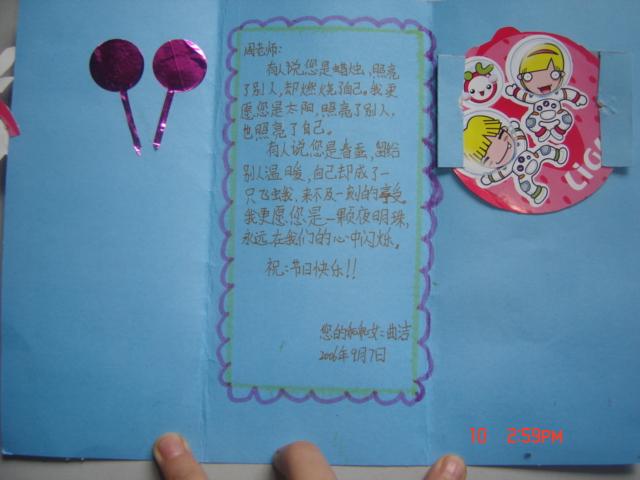 周老师:
有人说您是蜡烛,照亮
了别人,却燃烧了自己。我更
愿您是太阳,照亮了别人,
也照亮了自己。
有人说您是春蚕,留给
别人温暖,自己却成了一
只飞虫我,来不及一刻的享受。
我更愿您是一颗夜明珠,
永远在我们的心中闪烁。
祝:节日快乐!!
您的 :曲洁
2006年9月7日
LIGH
10 2:59PM